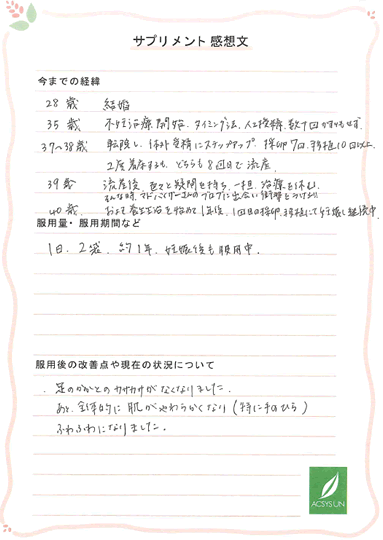 サプリメント 感想文
今までの経緯
28歳 結婚
35歳 不妊治療開始。タイミング法、人工授精、数回
37〜38歳 転院し、体外受精にステップアップ。採卵7回、移植10回以上、
2度着床するも、どちらも8週目で流産
39歳 流産後、色々と疑問を持ち、一旦、治療を休む。
そんな時、 ブログに出会い衝撃を
40歳 1年後、1回目の採卵、移植にて妊娠し継続中
服用量・服用期間など
1日、2袋、約1年、妊娠後も服用中。
服用後の改善点や現在の状況について
・足のかかとのカサカサがなくなりました。
あと、全体的に肌がやわらかくなり(特に手のひら)
ふわふわになりました。
ACSYS UN